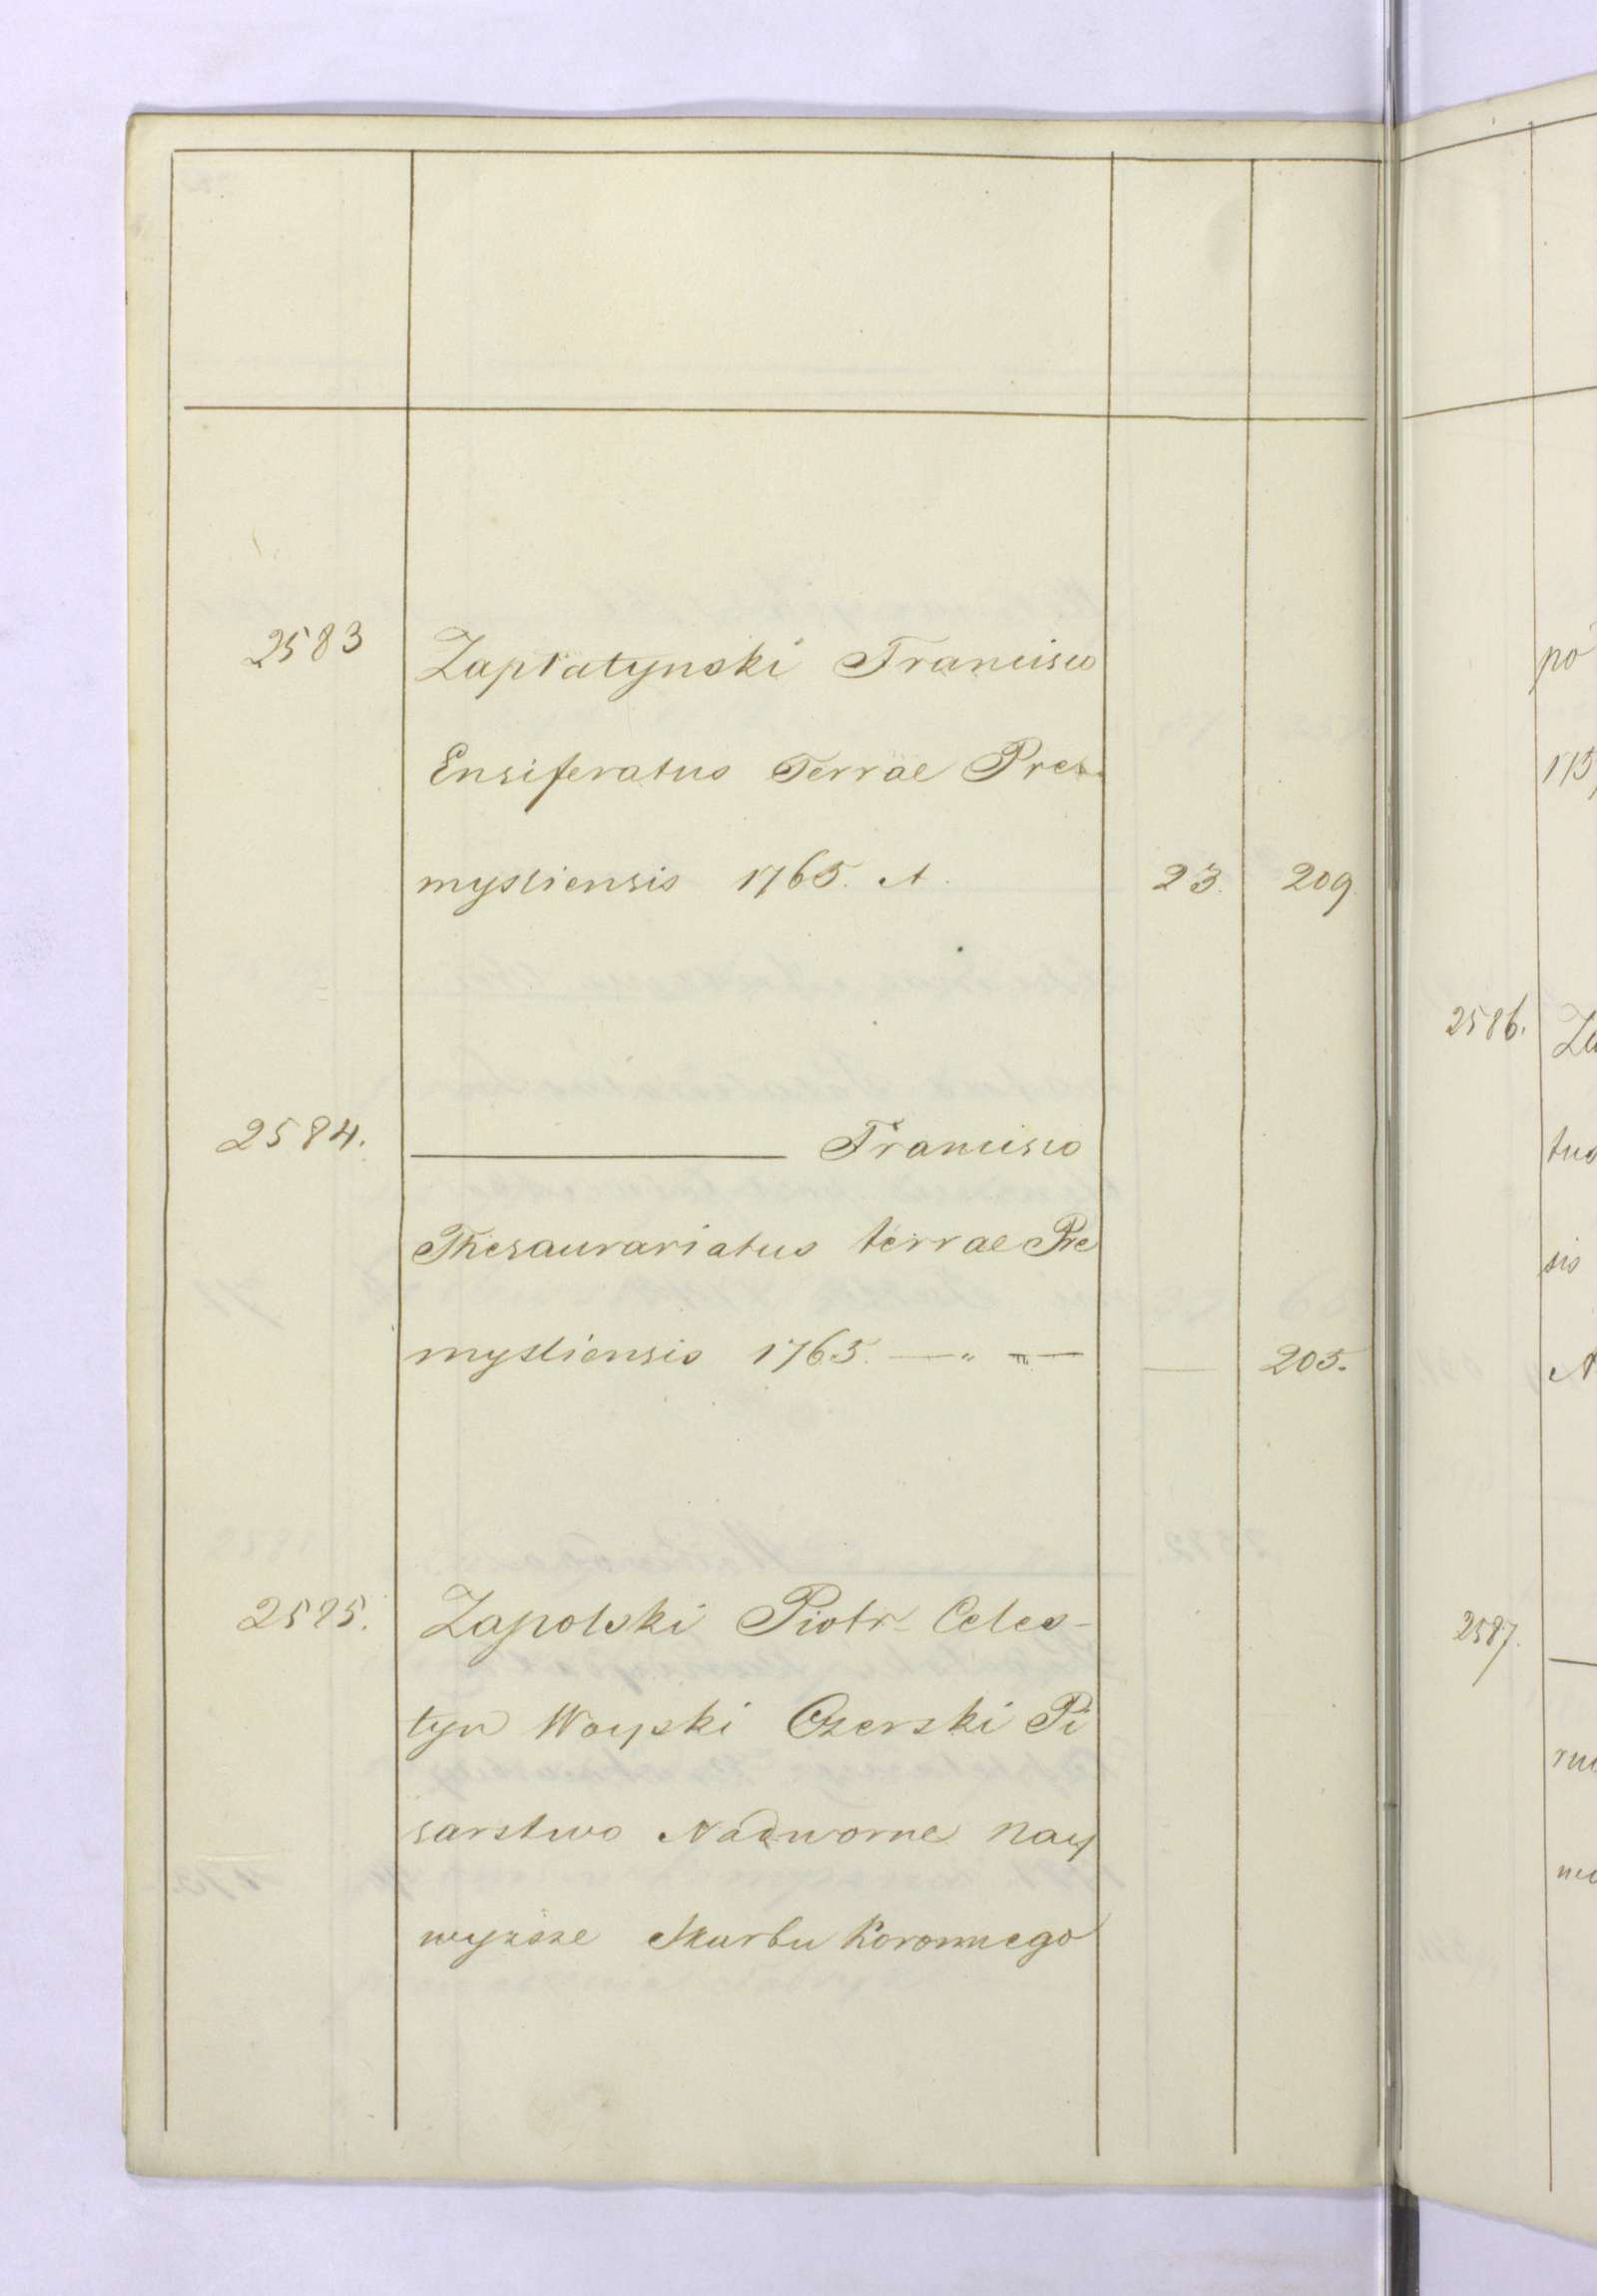 2583 Zapłatynski Francisco
Ensiferatus Terrae Pres-
mysliensis 1765. A. 23. 209.
2584. ——— Francisco
Thesaurariatus terrae Pre
mysliensis 1765. — „ „ — — 205.
2585. Zapolski Piotr Celes-
tyn Woyski Czerski Pi
sarstwo Nadworne Nay
wyzsze Skarbu Koronnego
po
2586.
tus
sis
A
2587.